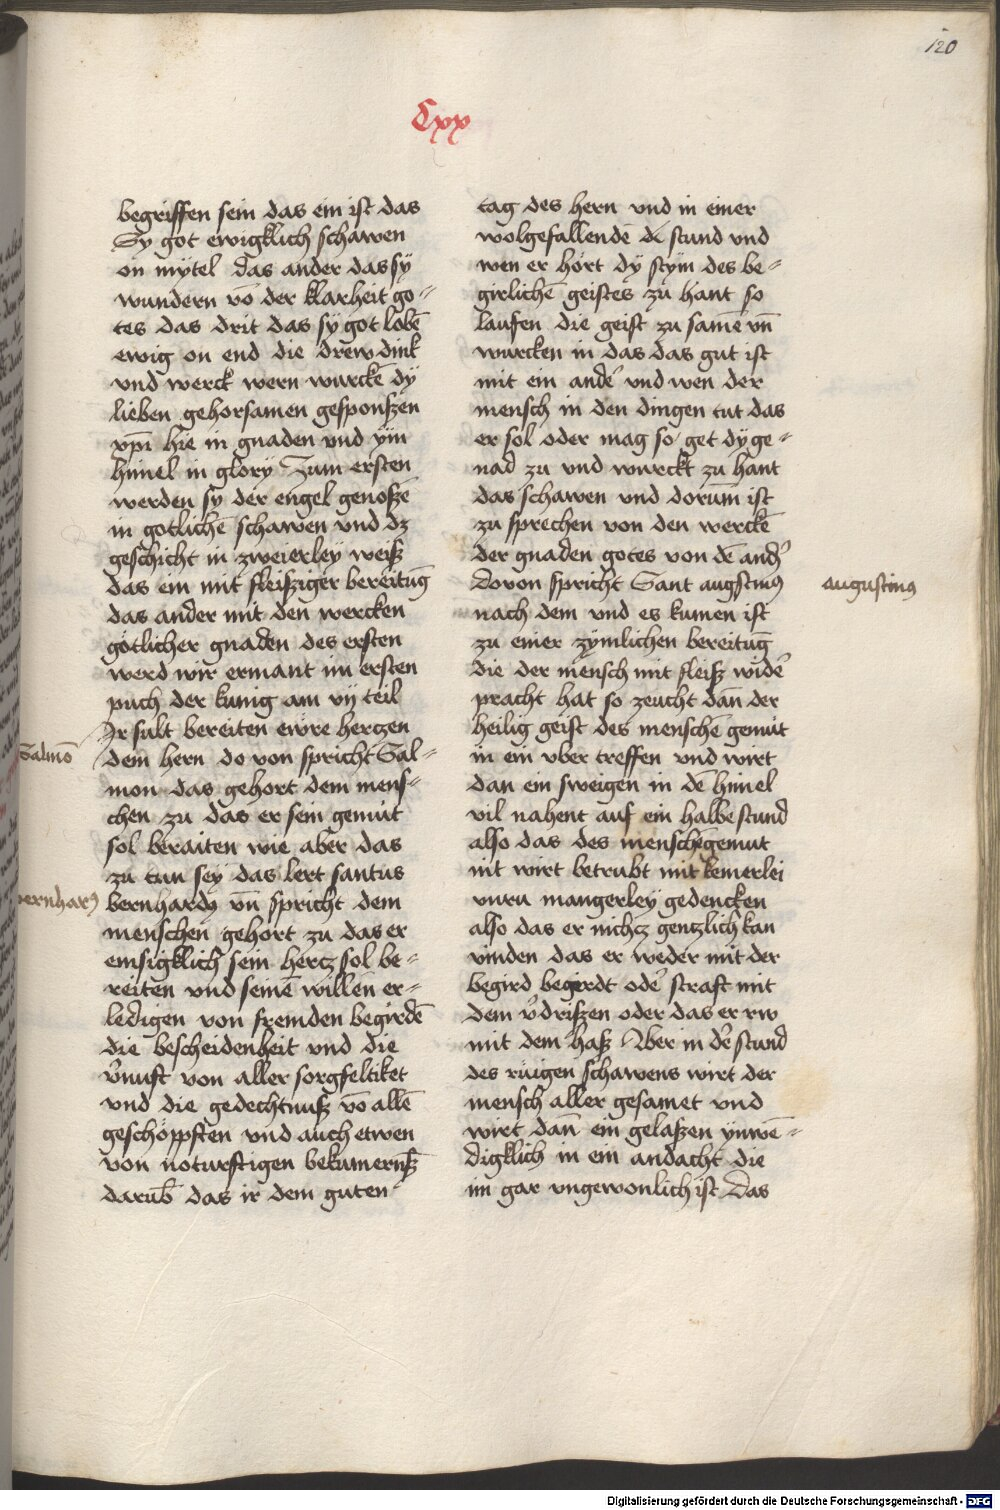 120
Cxx
begriffen sein das ein ist das
Sy got ewigklich schawen
on mytel das ander das sÿ
wundern vō der klarheit go-
tes das drit das sy got lobē
ewig on end die drew dink
vnd werck wern wurckē dÿ
lieben gehorsamen gesponszen
xp̄i hie in gnaden vnd ym
himel in glory Zum ersten
werden sy der engel genoszē
in gotlichē schawen vnd dz
geschicht in zweierley weisz
das ein mit fleisziger bereitūg
das ander mit den wercken
gotlicher gnaden des ersten
werd wir ermant im ersten
puch der kunig am vij teil
Ir sult bereiten ewre hertzen
Salmō
dem hern do von spricht Sal-
mon das gehort dem mens-
chen zu das er sein gemüt
sol beraiten wie aber das
zu tun seÿ das lert santus
bernhar9
bernhardz vn̄ spricht dem
menschen gehort zu das er
emsigklich sein hertz sol be-
reiten vnd seinē willen er-
ledigen von fremden begirdē
die bescheidenheit vnd die
v̄nuft von aller sorgfeltiket
vnd die gedechtnusz vō allē
geschöppften vnd auch etwen
von noturftigen bekumernusz
darūb das ir dem guten
tag des hern vnd in einer
wolgefallendē stund vnd
wen er hört dÿ stym des be-
girlichē geistes zu hant so
laufen die geist zu samē vn̄
wurcken in das das gut ist
mit ein andē vnd wen der
mensch in den dingen tut das
er sol oder mag so get dÿ ge-
nad zu vnd wurckt zu hant
das schawen vnd dorūm ist
zu sprechen von den werckē
der gnaden gotes von dē and̓
Dovon spricht Sant augstin9
augustin9
nach dem vnd es kumen ist
zu einer zymlichen bereitūg
die der mensch mit fleisz widē
pracht hat so zeucht dan̄ der
heilig geist des menschē gemüt
in ein vber treffen vnd wirt
dan ein sweigen in dē himel
vil nahent auf ein halbe stund
also das des menschē gemüt
nit wirt betrubt mit keinerlei
mangerleÿ gedencken
also das er nichcz gentzlich kan
vinden das er weder mit der
begird begerdt ode̓ straft mit
dem v̓driszen oder das er rw
mit dem hasz Aber in de̓ stund
des rüigen schawens wirt der
mensch aller gesamet vnd
wirt dan̄ ein gelaszen ynwē-
digklich in ein andacht die
im gar vngewonlich ist Das
Digitalisierung gefördert durch die Deutsche Forschungsgemeinschaft - DFG